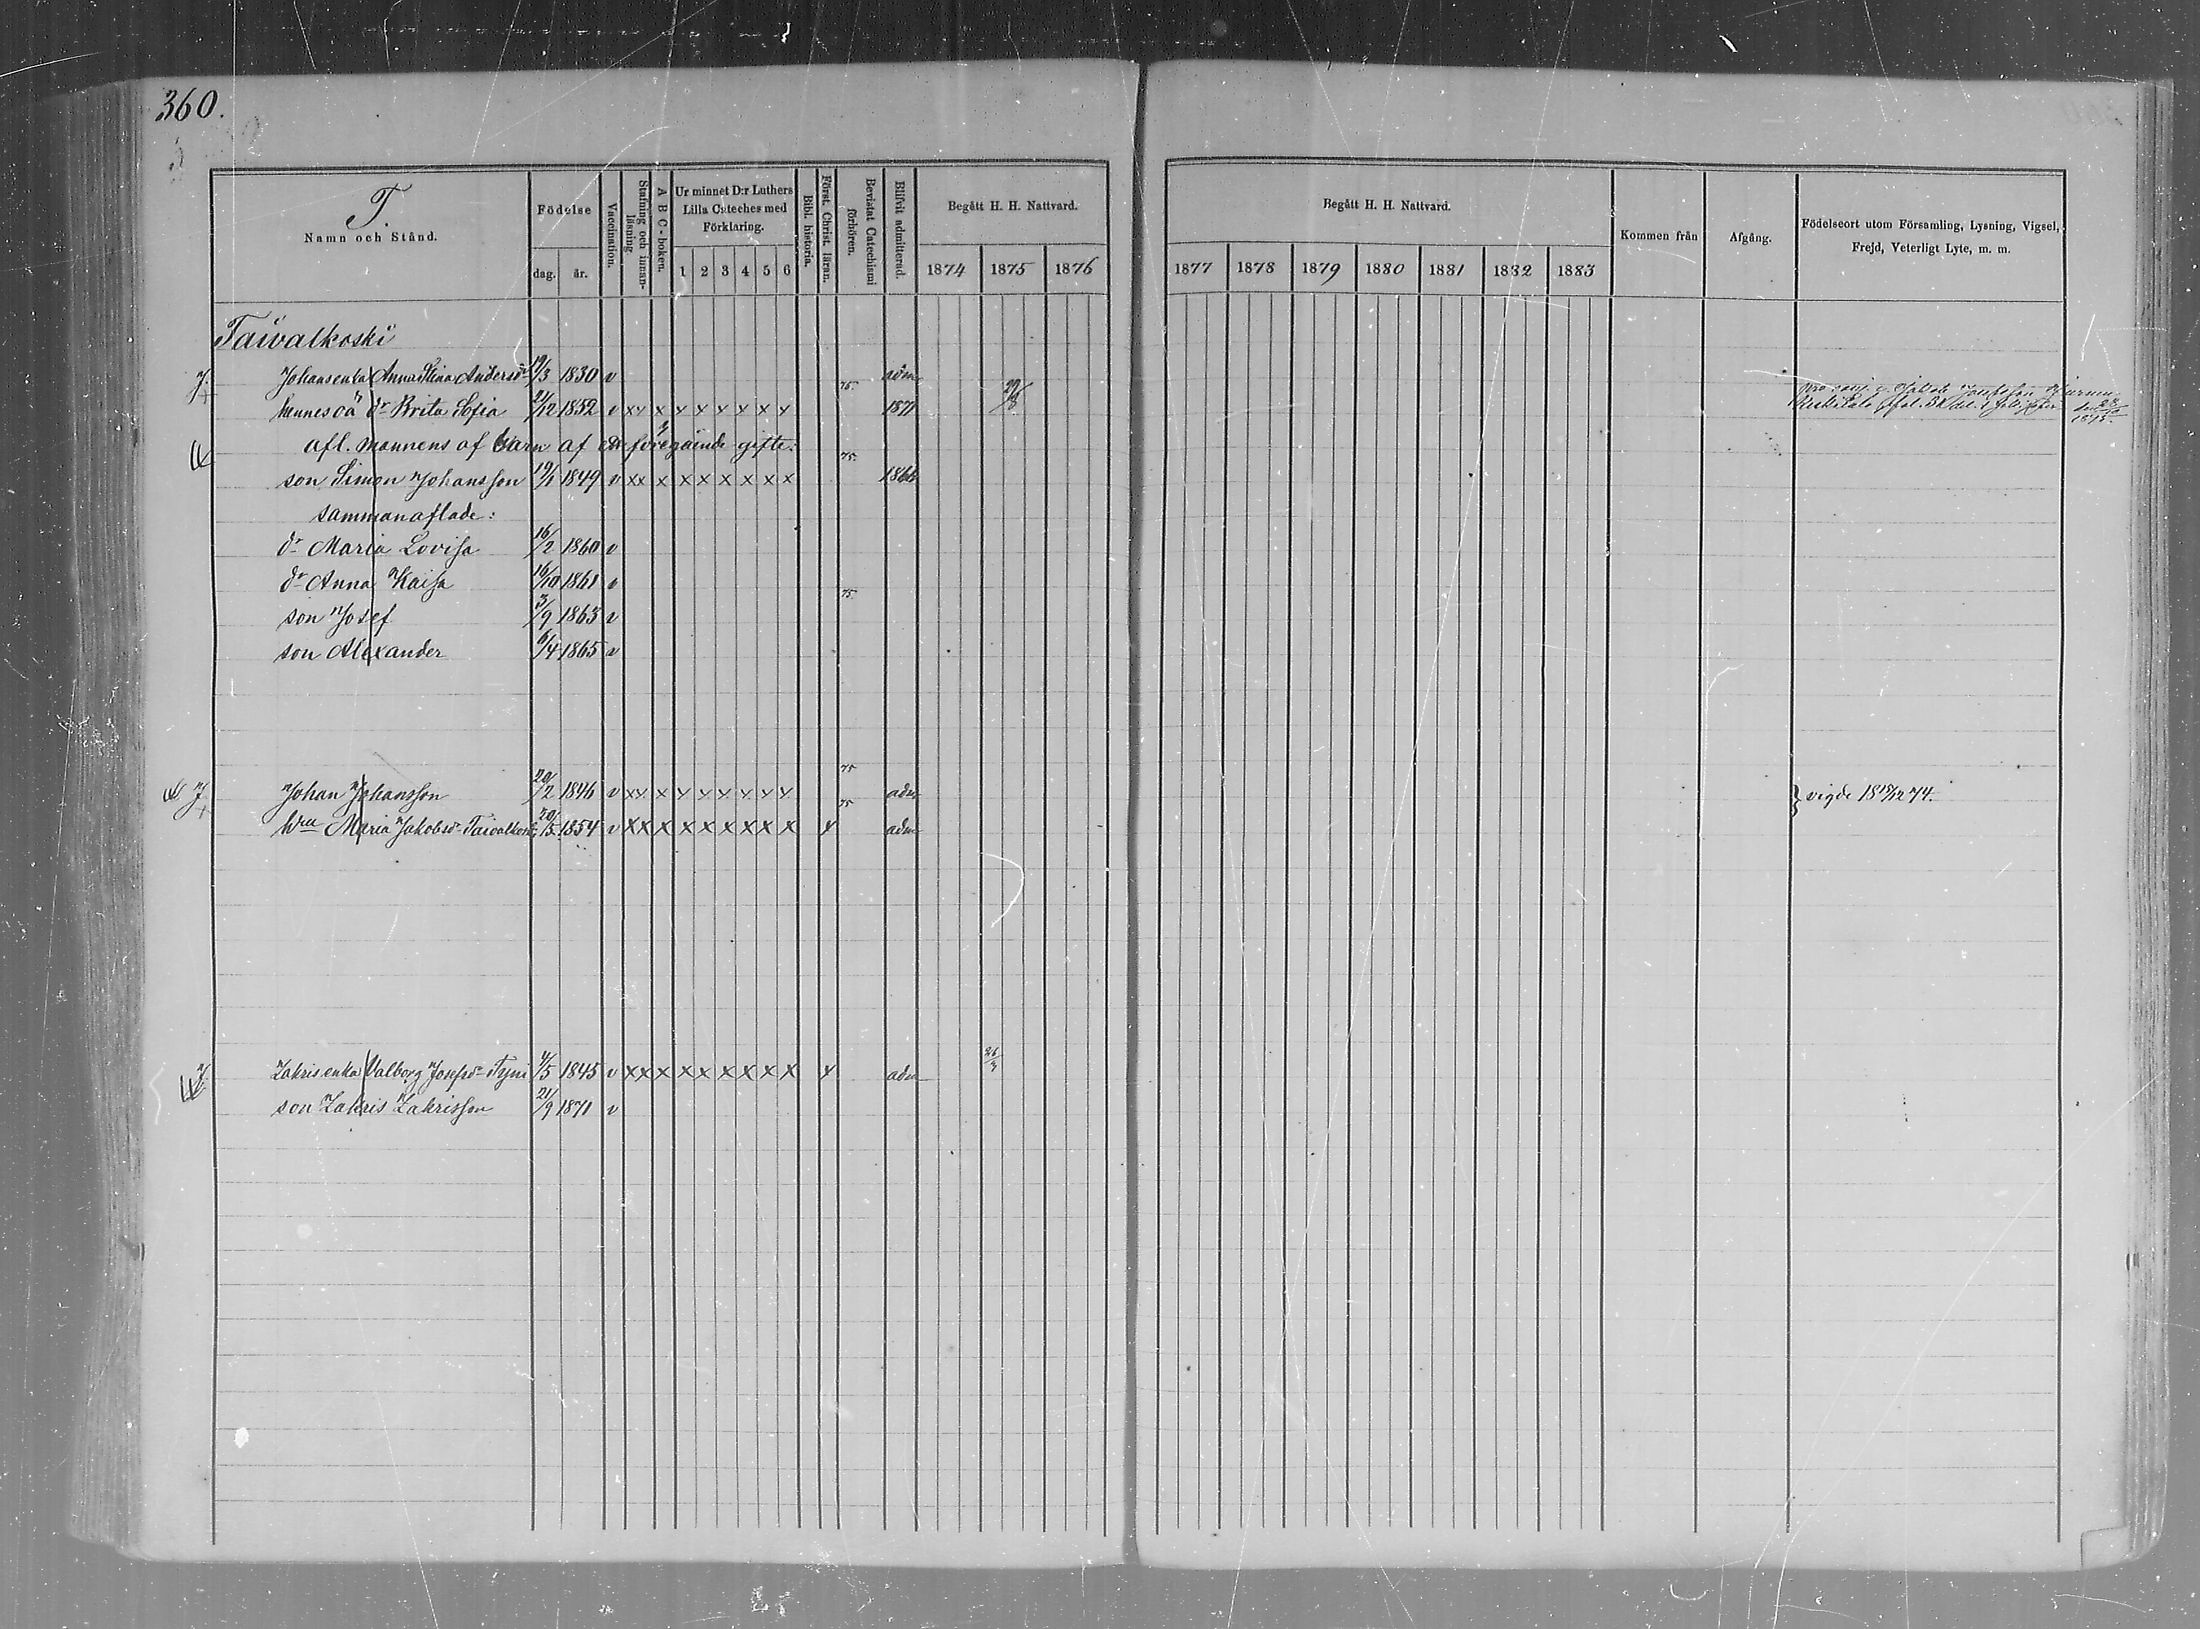 360.
T.
Namn och Stånd.
Födelse
dag.
år.
Vaccination.
Stafning och innan-
läsning
A B C - boken.
Ur minnet D:r Luthers
Lilla Cateches med
Förklaring.
1 2 3 4 5 6
Bibl. historia.
Först. Christ. läran.
Bevistat Catechismi
förhören.
Blifvit admitterad.
Begått H. H. Nattvard.
1874 1875 1876
Begått H. H. Nattvard.
1877 1878 1879 1880 1881 1882 1883
Kommen från
Afgång.
Födelseort utom Församling, Lysning, Vigsel,
Frejd, Veterligt Lyte, m. m.
Taivalkoski
Johansenka Anna Stina Andersdr 19/3 1830 v 75 adm 29/8
hennes oä dr Brita Sofia 21/12 1852 v xx x x x x x x x 1871
afl. mannens af barn af föregående gifte: 75
son Simon Johansson 19/1 1849 v xx x x x x x x x 1866
sammanaflade:
dr Maria Lovisa 16/2 1860 v
dr Anna Kaisa 16/10 1861 v 75
son Josef 3/9 1863 v
son Alexander 6/4 1865 v
75
Johan Johansson 20/2 1846 v xx x x x x x x x 75 adm } vigde 18 18/12 74.
hru Maria Jakobsdr Taivalkoski 20/5 1854 v xx x x x x x x x x adm
Zakrisenka Valborg Josefsdr Tyni 4/5 1845 v xx x x x x x x x x adm 26/3
son Zakris Zakrisson 21/9 1871 v